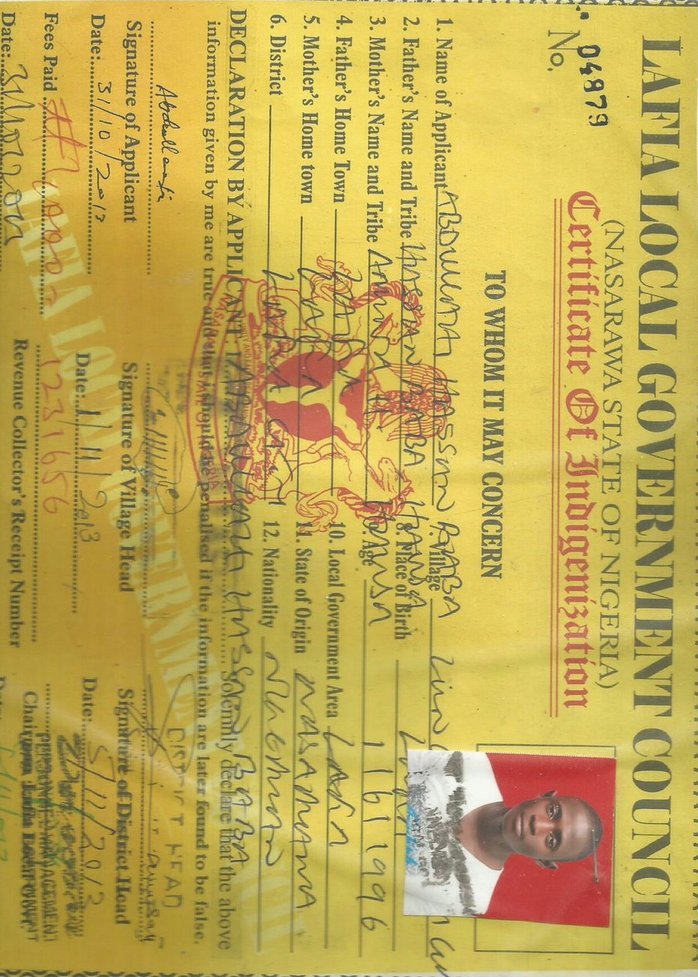 LAFIA LOCAL GOVERNMENT COUNCIL
(NASARAWA STATE OF NIGERIA)
Certificate Of Indigenization
No. 04879
TO WHOM IT MAY CONCERN
1. Name of Applicant ABDULLAHI HASSAN BABA
2. Father's Name and Tribe HASSAN BABA HAUSA
3. Mother's Name and Tribe HAUSA
4. Father's Home Town LAFIA
5. Mother's Home town LAFIA
6. District LAFIA EAST
7. Village
8. Place of Birth LAFIA
9. Age 1996
10. Local Government Area LAFIA
11. State of Origin NASARAWA
12. Nationality NIGERIAN
DECLARATION BY APPLICANT: I ABDULLAHI HASSAN BABA Solemnly declare that the above
information given by me are true and that i should be penalised if the information are later found to be false.
Signature of Applicant
Date: 31/10/2013
Signature of Village Head
Date: 1/11/2013
DISTRICT HEAD
Signature of District Head
Date: 5/11/2013
Fees Paid
1231656
Revenue Collector's Receipt Number
Date:
LAFIA LOCAL GOVERNMENT